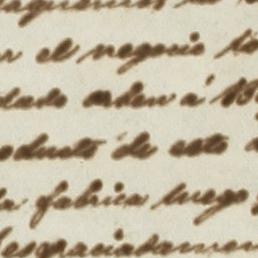 r el negocio to
dado orden á B
oducto de esto
la fabrica luego
esgraciadamen